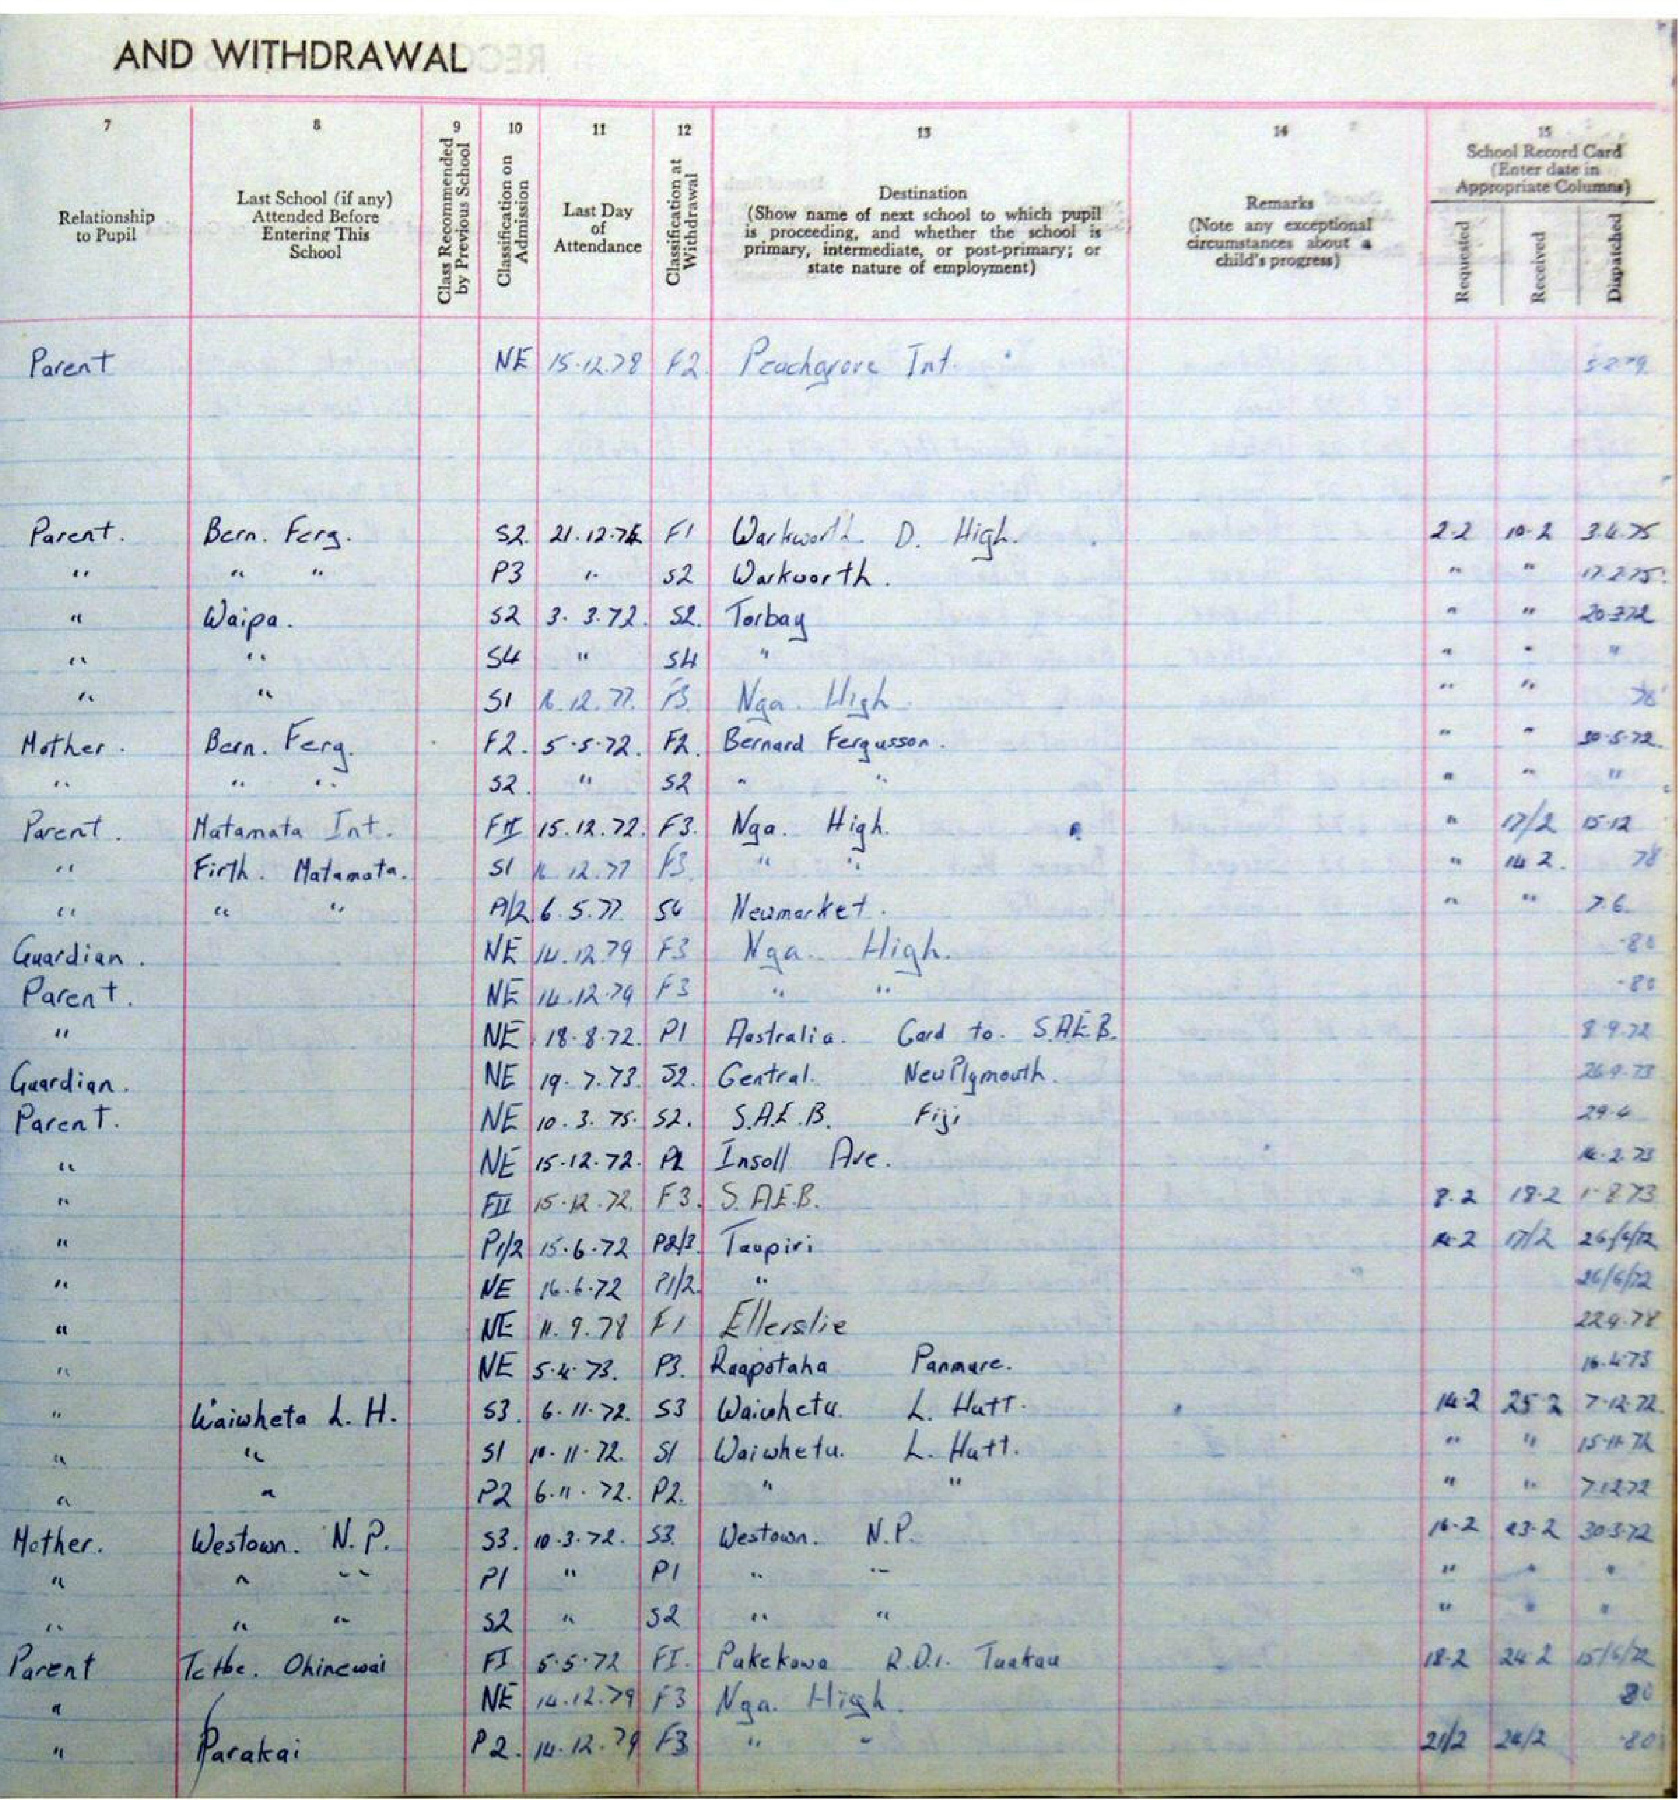 AND WITHDRAWAL
7 8 9 10 11 12 13 14 15
Relationship to Pupil
Last School (if any) Attended Before Entering This School
Class Recommended by Previous School
Classification on Admission
Last Day of Attendance
Classification at Withdrawal
Destination (Show name of next school to which pupil is proceeding, and whether the school is primary, intermediate, or post-primary; or state nature of employment)
Remarks (Note any exceptional circumstances about a child's progress)
School Record Card (Enter date in Appropriate Columns)
Requested Received Dispatched
Parent NE 15.12.78 F2. Peachgrove Int. 5.2.79.
Parent. Bern. Ferg. S2. 21.12.74 F1 Warkworth D. High. 2.2 10.2 3.4.75
" " " P3 " S2 Warkworth. " " 17.2.75.
" Waipa. S2 3.3.72. S2. Torbay " " 20.3.72
" " S4 " S4 " " " "
" " S1 16.12.77. F3. Nga. High " " 78
Mother. Bern. Ferg. F2. 5.5.72. F2. Bernard Fergusson. " " 30.5.72.
" " " S2. " S2 " " " " "
Parent. Matamata Int. FII 15.12.72. F3. Nga. High. " 17/2 15.12
" Firth. Matamata. S1 16.12.77 F3 " " " 14.2. 78
" " " P1/2 6.5.77. S4 Newmarket. " " 7.6.
Guardian. NE 14.12.79 F3 Nga. High. -80
Parent. NE 14.12.79 F3 " " -80
" NE 18.8.72. P1 Australia. Card to. S.A.E.B. 8.9.72
Guardian. NE 19.7.73. S2. Central. New Plymouth. 26.9.73
Parent. NE 10.3.75. S2. S.A.E.B. Fiji 29.4
" NE 15.12.72. P2 Insoll Ave. 14.2.73
" FII 15.12.72. F3. S.A.E.B. 8.2 18.2 1.8.73
" P1/2 15.6.72 P2/3. Taupiri 14.2 17/2 26/6/72
" NE 16.6.72 P1/2. " 26/6/72
" NE 11.9.78 F1 Ellerslie 22.9.78
" NE 5.4.73. P3. Ruapotaha Panmure. 16.4.73
" Waiwheta L. H. S3. 6.11.72. S3 Waiwhetu. L. Hutt. 14.2 25.2 7.12.72.
" " S1 10.11.72. S1 Waiwhetu. L. Hutt. " " 15.11.72
" " P2 6.11.72. P2. " " " " 7.12.72
Mother. Westown. N.P. S3. 10.3.72. S3. Westown. N.P. 16.2 23.2 30.3.72
" " " P1 " P1 " " " " "
" " " S2 " S2 " " " " "
Parent Ohinewai FI 5.5.72 FI. Pukekawa R.D.1. Tuakau 18.2 24.2 15/6/72
" NE 14.12.79 F3 Nga. High. 80
" Parakai P2. 14.12.79 F3 " " 21/2 26/2 -80